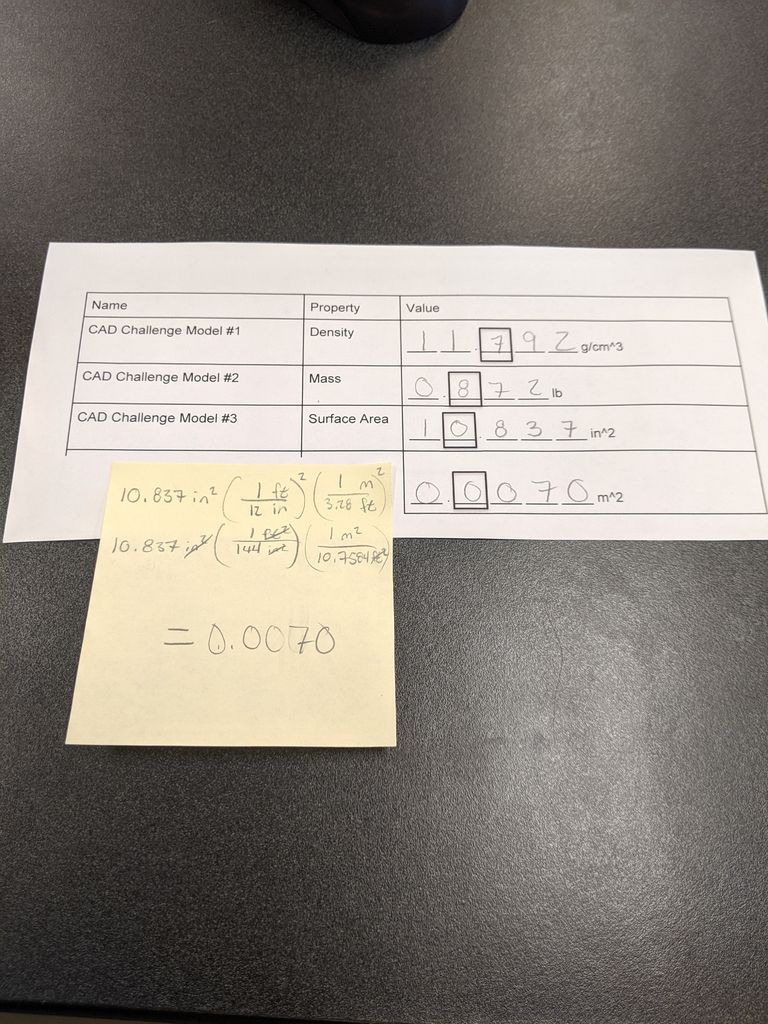 Name Property Value
CAD Challenge Model #1 Density 11.792 g/cm^3
CAD Challenge Model #2 Mass 0.872 lb
CAD Challenge Model #3 Surface Area 10.837 in^2
0.0070 m^2
10.837 in² (1 ft / 12 in)² (1 m / 3.28 ft)²
10.837 in² (1 ft² / 144 in²) (1 m² / 10.7584 ft²)
= 0.0070